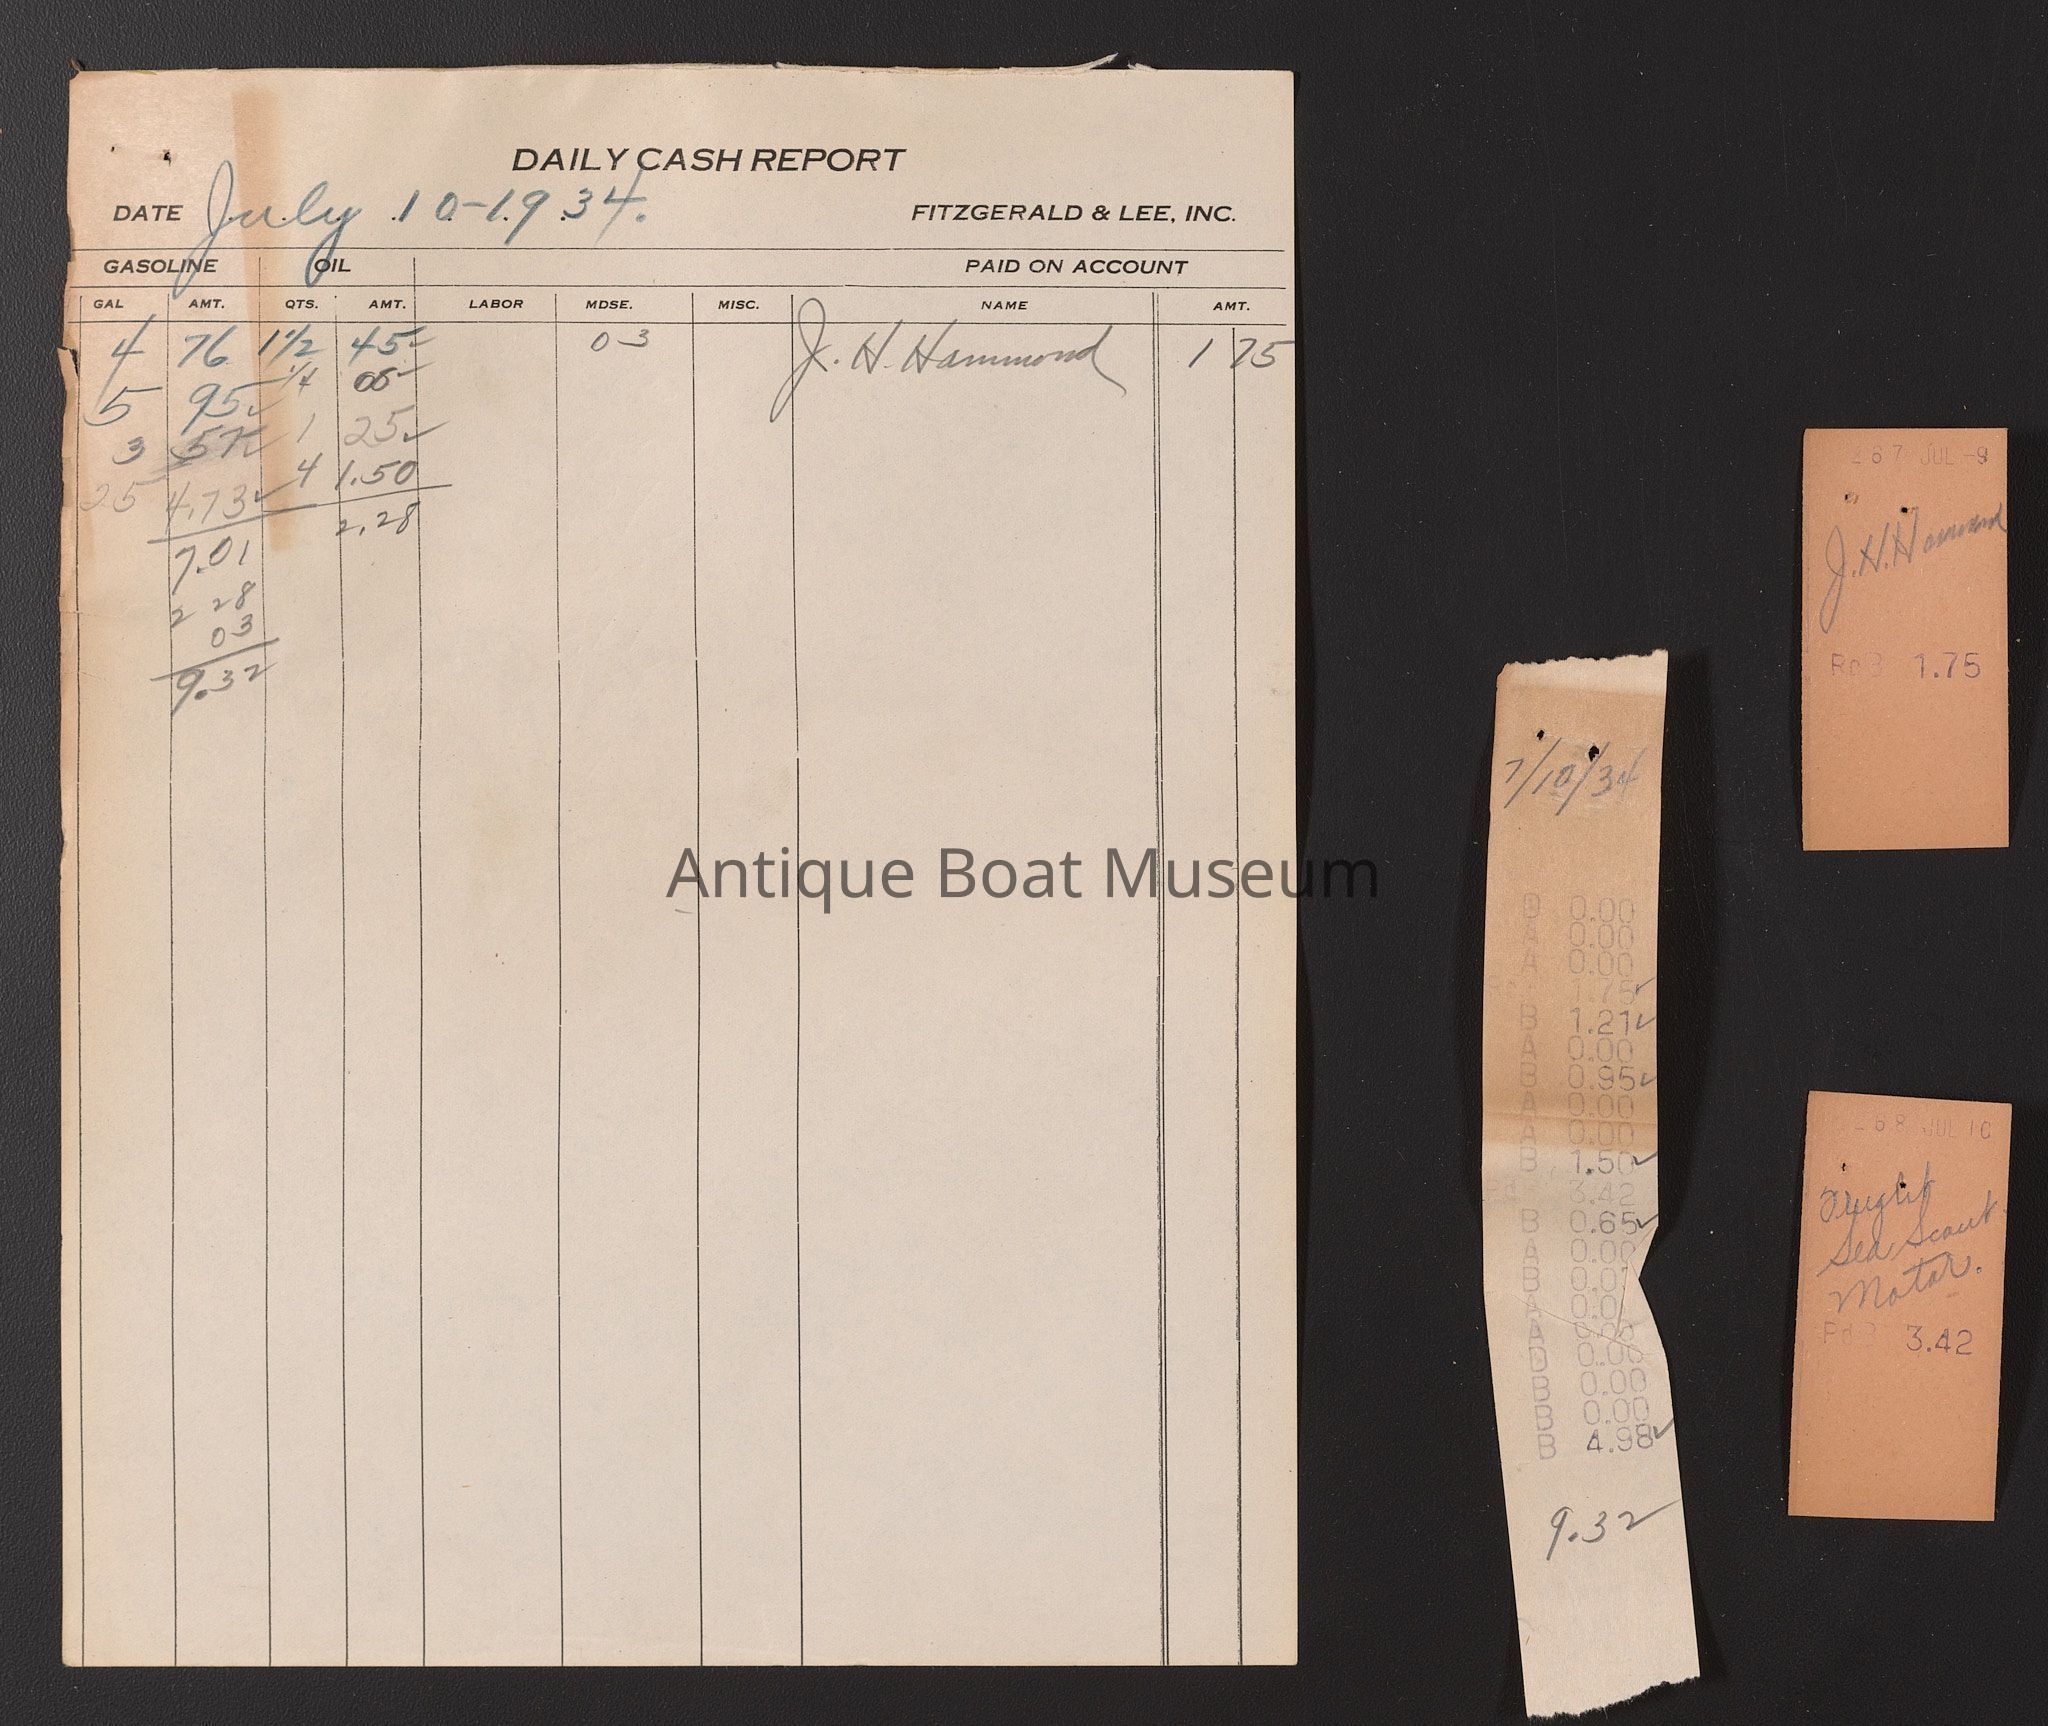 DAILY CASH REPORT
DATE July 10-1934. FITZGERALD & LEE, INC.
GASOLINE OIL PAID ON ACCOUNT
GAL AMT. QTS. AMT. LABOR MDSE. MISC. NAME AMT.
4 76 1 1/2 45 03 J. H. Hammond 1 75
5 95 1/4
3 57 1 25
25 4.73 4 1.50
7.01 2.28
2 28
03
9.32
Antique Boat Museum
7/10/34
0.00
A 0.00
A 0.00
1.75
B 1.21
A 0.00
B 0.95
A 0.00
A 0.00
B 1.50
3.42
B 0.65
A 0.00
B
A 0.00
0.00
B 0.00
B 0.00
B 4.98
9.32
267 JUL -9
J. H. Hammond
1.75
268 JUL 10
Sea Scout
Motor.
3.42